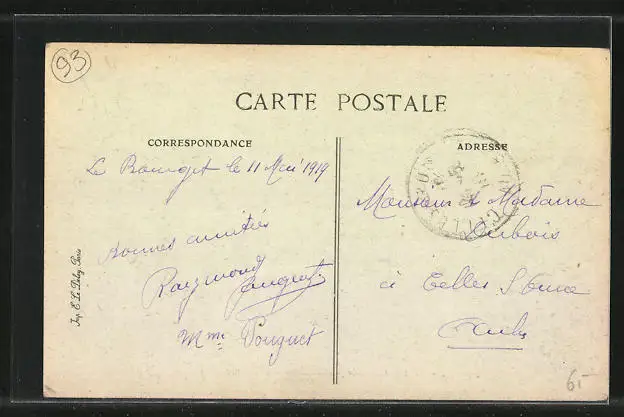 93
CARTE POSTALE
CORRESPONDANCE
ADRESSE
Le Bourget le 11 Mai 1919
Bonnes amitiés
Raymond
Mme Pouguet
Monsieur et Madame
Dubois
à Celles S/Ource
Aube
Imp. E. Le Deley, Paris